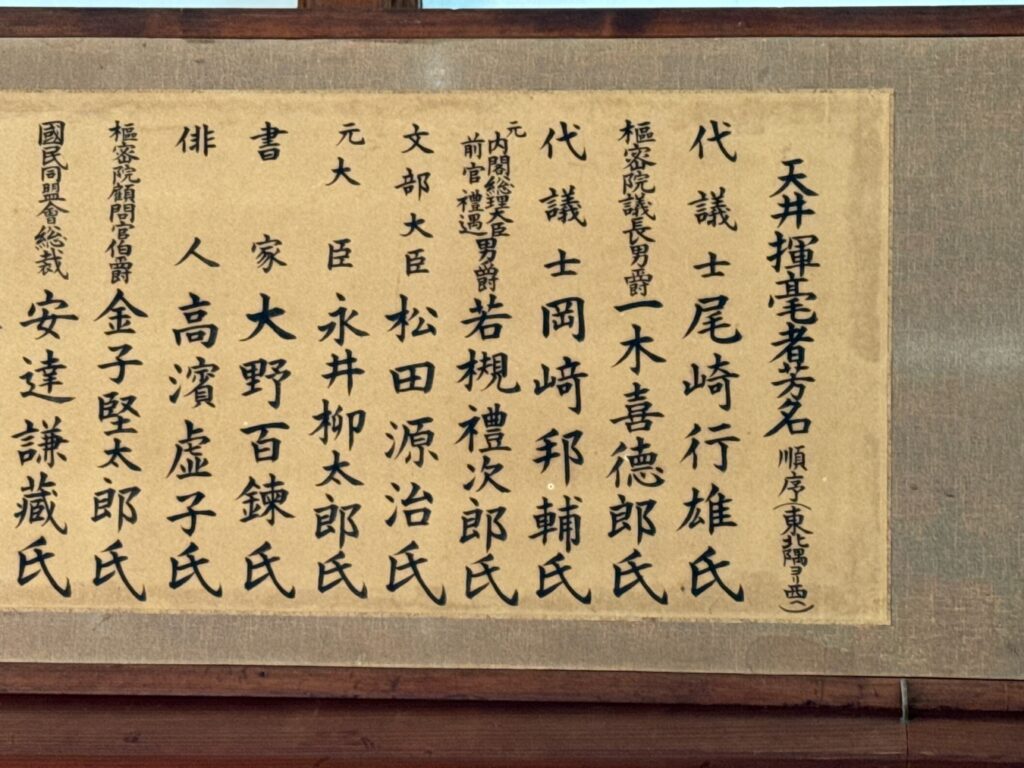 天井揮毫者芳名 順序(東北隅ヨリ西ヘ)
代議士 尾崎行雄氏
樞密院議長男爵 一木喜德郎氏
代議士 岡﨑邦輔氏
元内閣総理大臣前官禮遇男爵 若槻禮次郎氏
文部大臣 松田源治氏
元大臣 永井柳太郎氏
書家 大野百鍊氏
俳人 高濱虛子氏
樞密院顧問官伯爵 金子堅太郎氏
國民同盟會総裁 安達謙藏氏